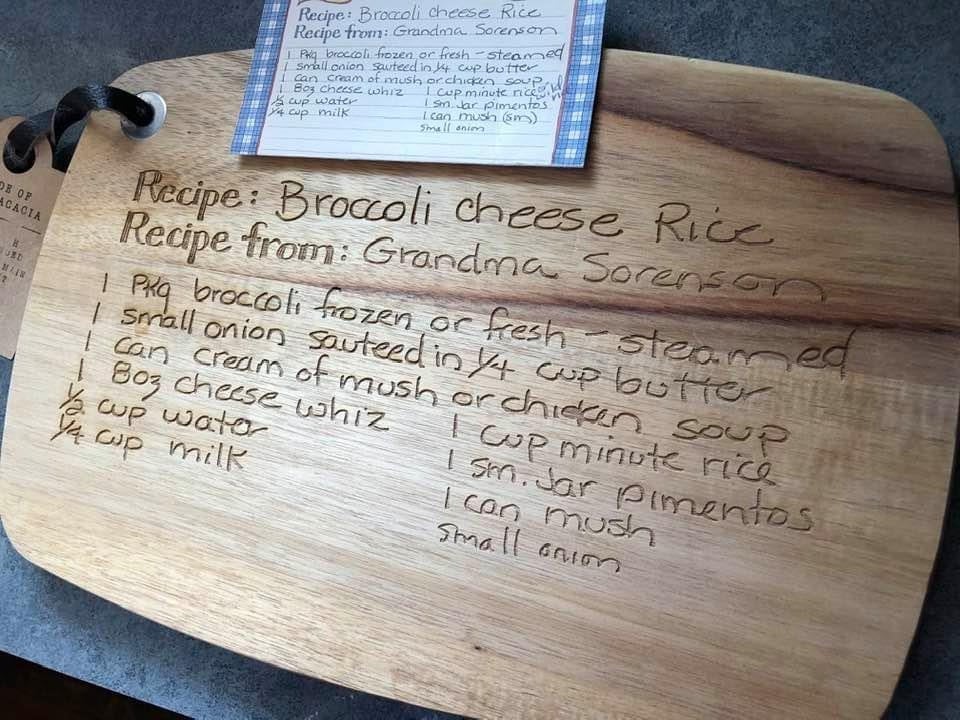 Recipe: Broccoli cheese Rice
Recipe from: Grandma Sorenson
1 Pkg broccoli frozen or fresh - steamed
1 small onion sauteed in 1/4 cup butter
1 can cream of mush or chicken soup
1 8oz cheese whiz 1 cup minute rice
1/2 cup water 1 sm. Jar pimentos
1/4 cup milk 1 can mush (sm)
small onion
DE OF
ACACIA
Recipe: Broccoli cheese Rice
Recipe from: Grandma Sorenson
1 Pkg broccoli frozen or fresh - steamed
1 small onion sauteed in 1/4 cup butter
1 can cream of mush or chicken soup
1 8oz cheese whiz
1/2 cup water
1/4 cup milk
1 cup minute rice
1 sm. Jar pimentos
1 can mush
small onion